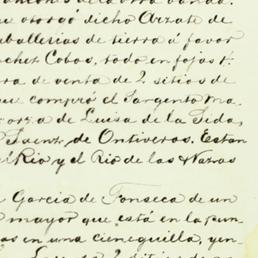 que otorgó dicho Arrate de
caballerias de tierra á favor
chez Cobos, todo en fojas 1.
ra de venta de 2 sitios de
que compró el Sargento Ma
de Luisa de la
Saenz de Ontiveros. Estan
el Rio y el Rio de las Nasas
Garcia de Fonseca de un
mayor que está en la pun
as en una cieneguilla, yen